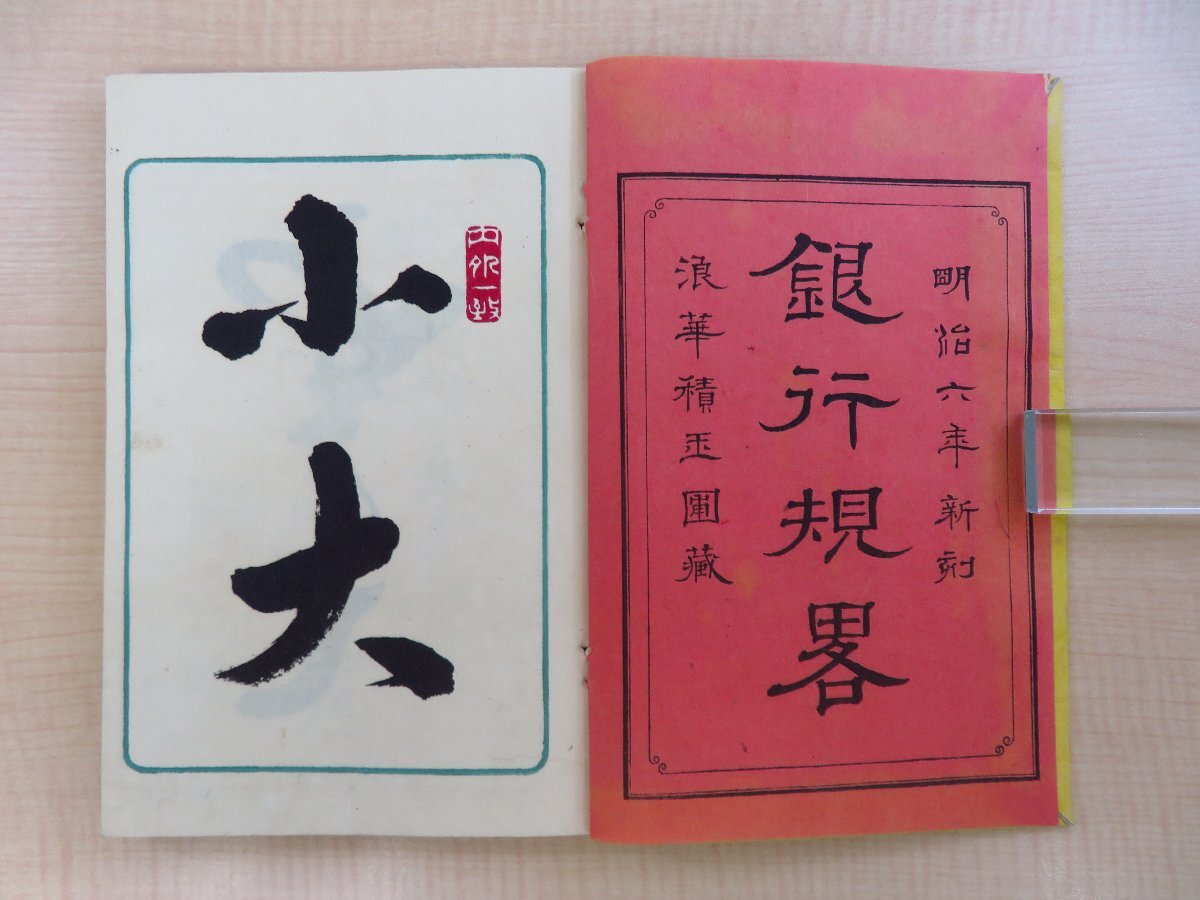 明治六年新刻
銀行規畧
浪華積玉圃藏
内外一致
小大